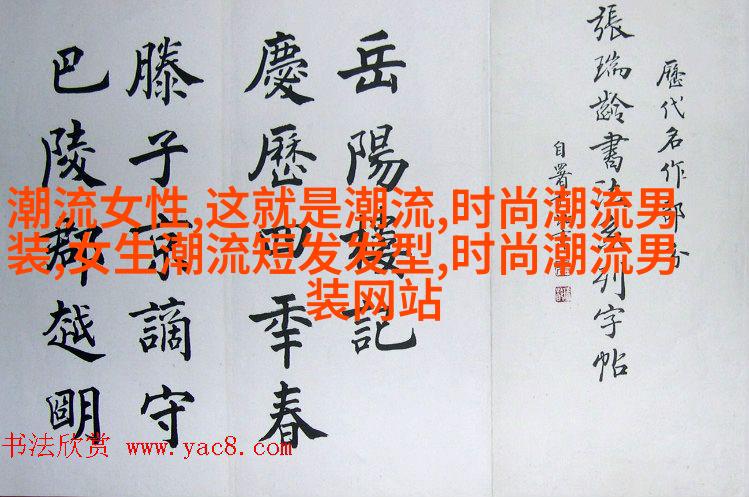 歷代名作部分
張瑞齡書法系列字帖
自署
岳陽樓記
慶歷四年春
滕子京謫守
巴陵郡越朙
潮流女性,这就是潮流,时尚潮流男
装,女生潮流短发发型,时尚潮流男
装网站
书法欣赏 www.yac8.com